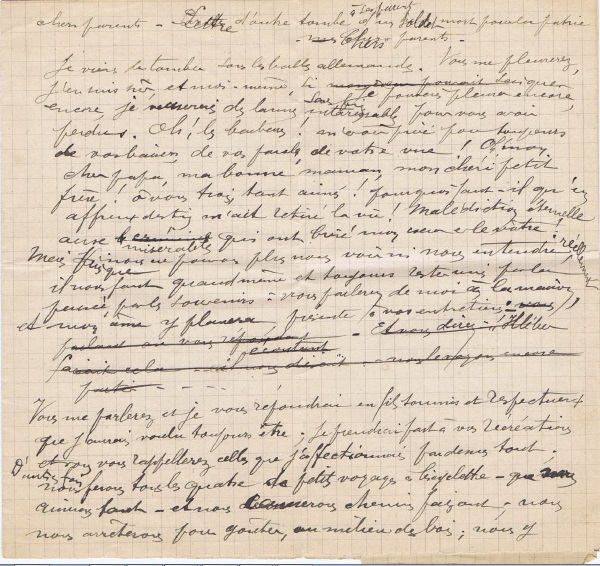 chers parents - Lettre d'outre tombe d'un soldat mort pour la patrie
à ses parents
- Chers parents -
Je viens de tomber sous les balles allemandes. Vous me pleurerez,
j'en suis sûr, et moi-même, si je pouvais pleurer encore,
encore, je verserais des larmes intarissables pour vous avoir
perdus. Oh! les bourreaux! m'avoir privé pour toujours
de vos baisers, de vos paroles, de votre vue! Oh mon
cher papa, ma bonne maman, mon chéri petit
frère! ô vous trois tant aimés! pourquoi faut-il qu'un
affreux destin m'ait retiré la vie! Malédiction éternelle
aux misérables qui ont brisé mon cœur et le vôtre.
Mais, puisque nous ne pouvons plus nous voir ni nous entendre réellement,
il nous faut quand même et toujours rester unis par la
pensée, par le souvenir - vous parlerez de moi à la maison
et mon âme y planera, présente à vos entretiens
- Et vous direz - "Kléber
faisait cela
Vous me parlerez et je vous répondrai en fils soumis et respectueux
que j'aurais voulu toujours être; je prendrai part à vos récréations
et vous vous rappellerez celles que j'affectionnais par dessus tout;
D'autres fois
nous ferons tous les quatre de petits voyages à bicyclette - que nous
aimions tant - et nous chemin faisant, nous
nous arrêterons pour goûter, au milieu des bois; nous y